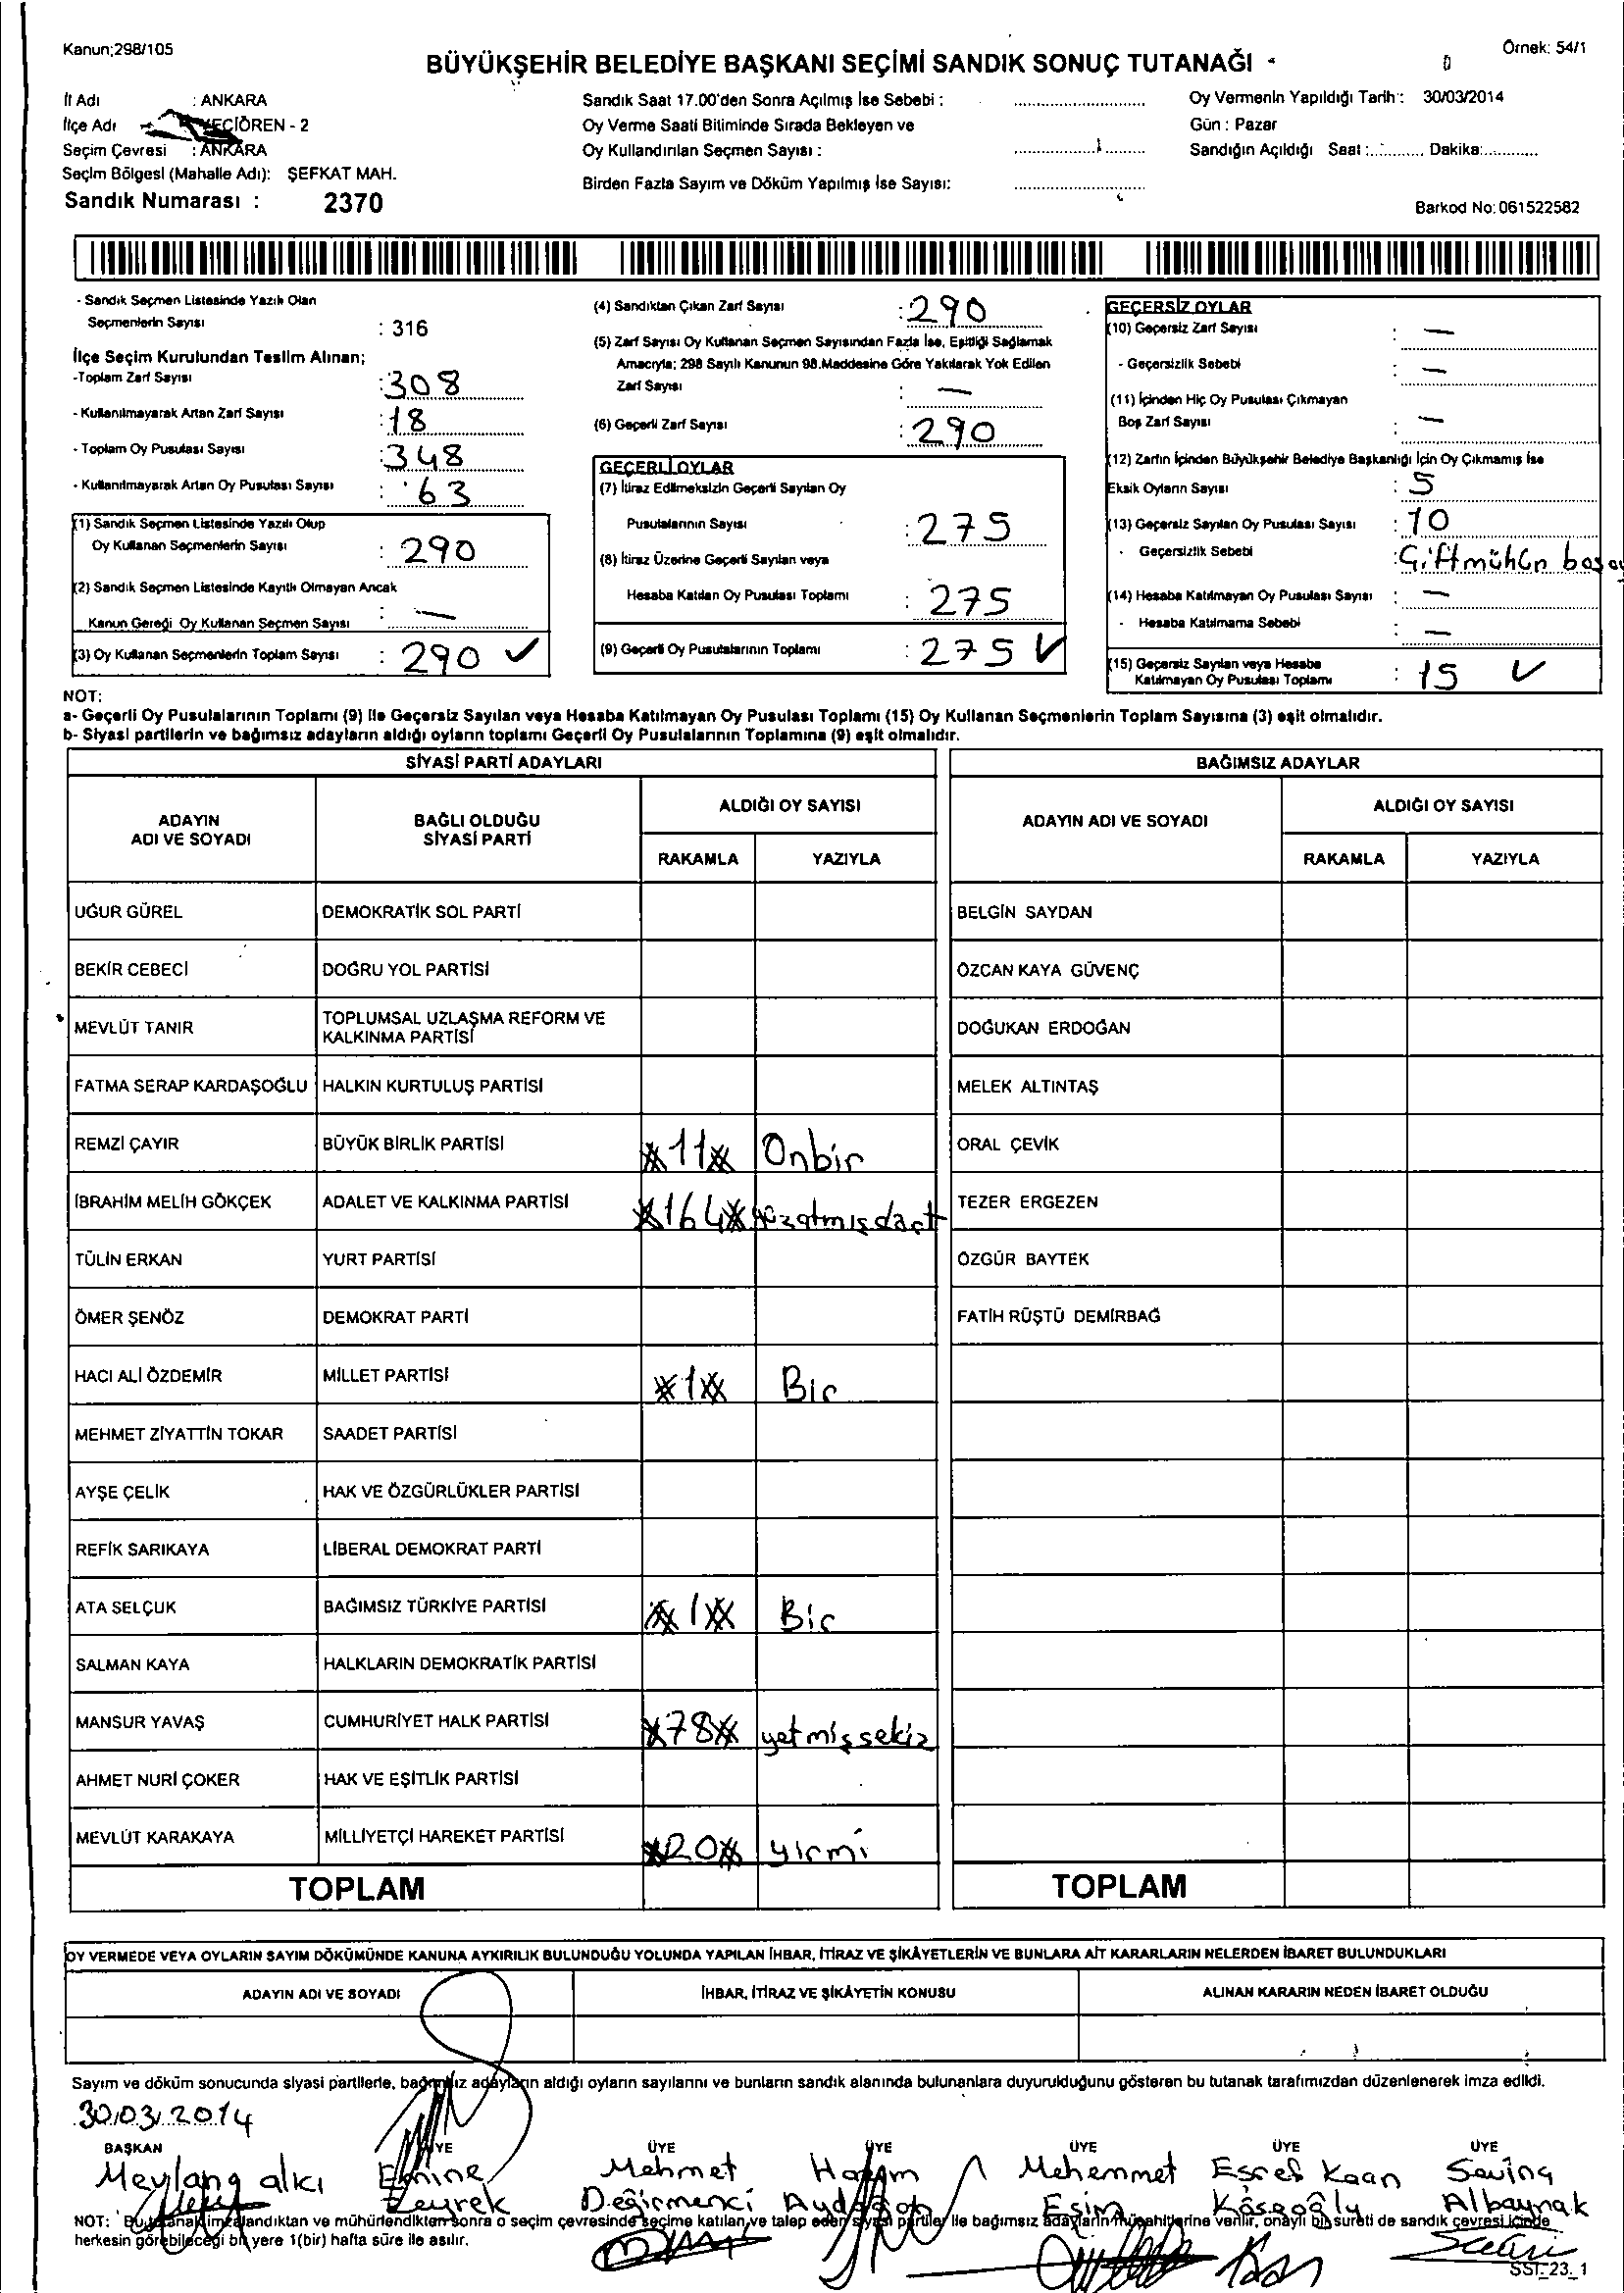 Kanun;298/105
Örnek: 54/1
BÜYÜKŞEHİR BELEDİYE BAŞKANI SEÇİMİ SANDIK SONUÇ TUTANAĞI
İl Adı : ANKARA
İlçe Adı KEÇİÖREN - 2
Seçim Çevresi : ANKARA
Seçim Bölgesi (Mahalle Adı): ŞEFKAT MAH.
Sandık Numarası : 2370
Sandık Saat 17.00'den Sonra Açılmış İse Sebebi :
Oy Verme Saati Bitiminde Sırada Bekleyen ve
Oy Kullandırılan Seçmen Sayısı :
Birden Fazla Sayım ve Döküm Yapılmış İse Sayısı:
Oy Vermenin Yapıldığı Tarih : 30/03/2014
Gün : Pazar
Sandığın Açıldığı Saat :........... Dakika:...........
Barkod No: 061522582
- Sandık Seçmen Listesinde Yazılı Olan
Seçmenlerin Sayısı : 316
İlçe Seçim Kurulundan Teslim Alınan;
-Toplam Zarf Sayısı : 308
- Kullanılmayarak Artan Zarf Sayısı : 18
- Toplam Oy Pusulası Sayısı : 348
- Kullanılmayarak Artan Oy Pusulası Sayısı : 63
(1) Sandık Seçmen Listesinde Yazılı Olup
Oy Kullanan Seçmenlerin Sayısı : 290
(2) Sandık Seçmen Listesinde Kayıtlı Olmayan Ancak
Kanun Gereği Oy Kullanan Seçmen Sayısı : —
(3) Oy Kullanan Seçmenlerin Toplam Sayısı : 290 ✓
(4) Sandıktan Çıkan Zarf Sayısı : 290
(5) Zarf Sayısı Oy Kullanan Seçmen Sayısından Fazla İse, Eşitliği Sağlamak
Amacıyla; 298 Sayılı Kanunun 98.Maddesine Göre Yakılarak Yok Edilen
Zarf Sayısı : —
(6) Geçerli Zarf Sayısı : 290
GEÇERLİ OYLAR
(7) İtiraz Edilmeksizin Geçerli Sayılan Oy
Pusulalarının Sayısı : 275
(8) İtiraz Üzerine Geçerli Sayılan veya
Hesaba Katılan Oy Pusulası Toplamı : 275
(9) Geçerli Oy Pusulalarının Toplamı : 275 ✓
GEÇERSİZ OYLAR
(10) Geçersiz Zarf Sayısı : —
- Geçersizlik Sebebi : —
(11) İçinden Hiç Oy Pusulası Çıkmayan
Boş Zarf Sayısı : —
(12) Zarfın İçinden Büyükşehir Belediye Başkanlığı İçin Oy Çıkmamış İse
Eksik Oyların Sayısı : 5
(13) Geçersiz Sayılan Oy Pusulası Sayısı : 10
- Geçersizlik Sebebi : Çiftmühür
(14) Hesaba Katılmayan Oy Pusulası Sayısı : —
- Hesaba Katılmama Sebebi : —
(15) Geçersiz Sayılan veya Hesaba
Katılmayan Oy Pusulası Toplamı : 15 ✓
NOT:
a- Geçerli Oy Pusulalarının Toplamı (9) İle Geçersiz Sayılan veya Hesaba Katılmayan Oy Pusulası Toplamı (15) Oy Kullanan Seçmenlerin Toplam Sayısına (3) eşit olmalıdır.
b- Siyasi partilerin ve bağımsız adayların aldığı oyların toplamı Geçerli Oy Pusulalarının Toplamına (9) eşit olmalıdır.
SİYASİ PARTİ ADAYLARI
ADAYIN ADI VE SOYADI
BAĞLI OLDUĞU SİYASİ PARTİ
ALDIĞI OY SAYISI
RAKAMLA YAZIYLA
UĞUR GÜREL DEMOKRATİK SOL PARTİ
BEKİR CEBECİ DOĞRU YOL PARTİSİ
MEVLÜT TANIR TOPLUMSAL UZLAŞMA REFORM VE KALKINMA PARTİSİ
FATMA SERAP KARDAŞOĞLU HALKIN KURTULUŞ PARTİSİ
REMZİ ÇAYIR BÜYÜK BİRLİK PARTİSİ 11 Onbir
İBRAHİM MELİH GÖKÇEK ADALET VE KALKINMA PARTİSİ 164 Yüzatmışdört
TÜLİN ERKAN YURT PARTİSİ
ÖMER ŞENÖZ DEMOKRAT PARTİ
HACI ALİ ÖZDEMİR MİLLET PARTİSİ 1 Bir
MEHMET ZİYATTİN TOKAR SAADET PARTİSİ
AYŞE ÇELİK HAK VE ÖZGÜRLÜKLER PARTİSİ
REFİK SARIKAYA LİBERAL DEMOKRAT PARTİ
ATA SELÇUK BAĞIMSIZ TÜRKİYE PARTİSİ 1 Bir
SALMAN KAYA HALKLARIN DEMOKRATİK PARTİSİ
MANSUR YAVAŞ CUMHURİYET HALK PARTİSİ 78 yetmişsekiz
AHMET NURİ ÇOKER HAK VE EŞİTLİK PARTİSİ
MEVLÜT KARAKAYA MİLLİYETÇİ HAREKET PARTİSİ 20 yirmi
TOPLAM
BAĞIMSIZ ADAYLAR
ADAYIN ADI VE SOYADI
ALDIĞI OY SAYISI
RAKAMLA YAZIYLA
BELGİN SAYDAN
ÖZCAN KAYA GÜVENÇ
DOĞUKAN ERDOĞAN
MELEK ALTINTAŞ
ORAL ÇEVİK
TEZER ERGEZEN
ÖZGÜR BAYTEK
FATİH RÜŞTÜ DEMİRBAĞ
TOPLAM
OY VERMEDE VEYA OYLARIN SAYIM DÖKÜMÜNDE KANUNA AYKIRILIK BULUNDUĞU YOLUNDA YAPILAN İHBAR, İTİRAZ VE ŞİKÂYETLERİN VE BUNLARA AİT KARARLARIN NELERDEN İBARET BULUNDUKLARI
ADAYIN ADI VE SOYADI İHBAR, İTİRAZ VE ŞİKÂYETİN KONUSU ALINAN KARARIN NEDEN İBARET OLDUĞU
Sayım ve döküm sonucunda siyasi partilerle, bağımsız adayların aldığı oyların sayılarını ve bunların sandık alanında bulunanlara duyurulduğunu gösteren bu tutanak tarafımızdan düzenlenerek imza edildi.
30.03.2014
BAŞKAN ÜYE ÜYE ÜYE ÜYE ÜYE ÜYE
alkı Emine Mehmet Mehemmet Eşref Kaan
Zeyrek Değirmenci Köseoğlu Albaynak
NOT: Bu tutanak imzalandıktan ve mühürlendikten sonra o seçim çevresinde seçime katılan ve talep eden siyasi partiler ile bağımsız adayların müşahitlerine verilir, onaylı bir sureti de sandık çevresi içinde
herkesin görebileceği bir yere 1(bir) hafta süre ile asılır.
SST_23_1